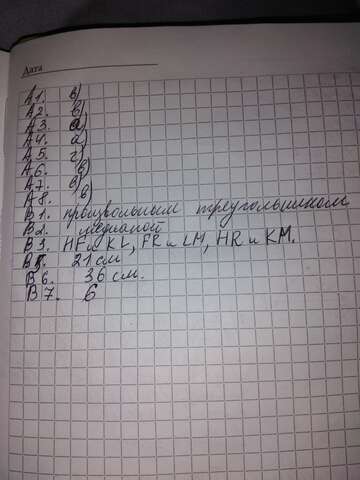 Дата
А1. в)
А2. в)
А3. а)
А4. а)
А5. г)
А6. в)
А7. в)
А8. в)
В1. произвольным треугольником
В2. медианой
В3. HF и KL, FR и LM, HR и KM.
В5. 21 см
В6. 36 см.
В7. 6